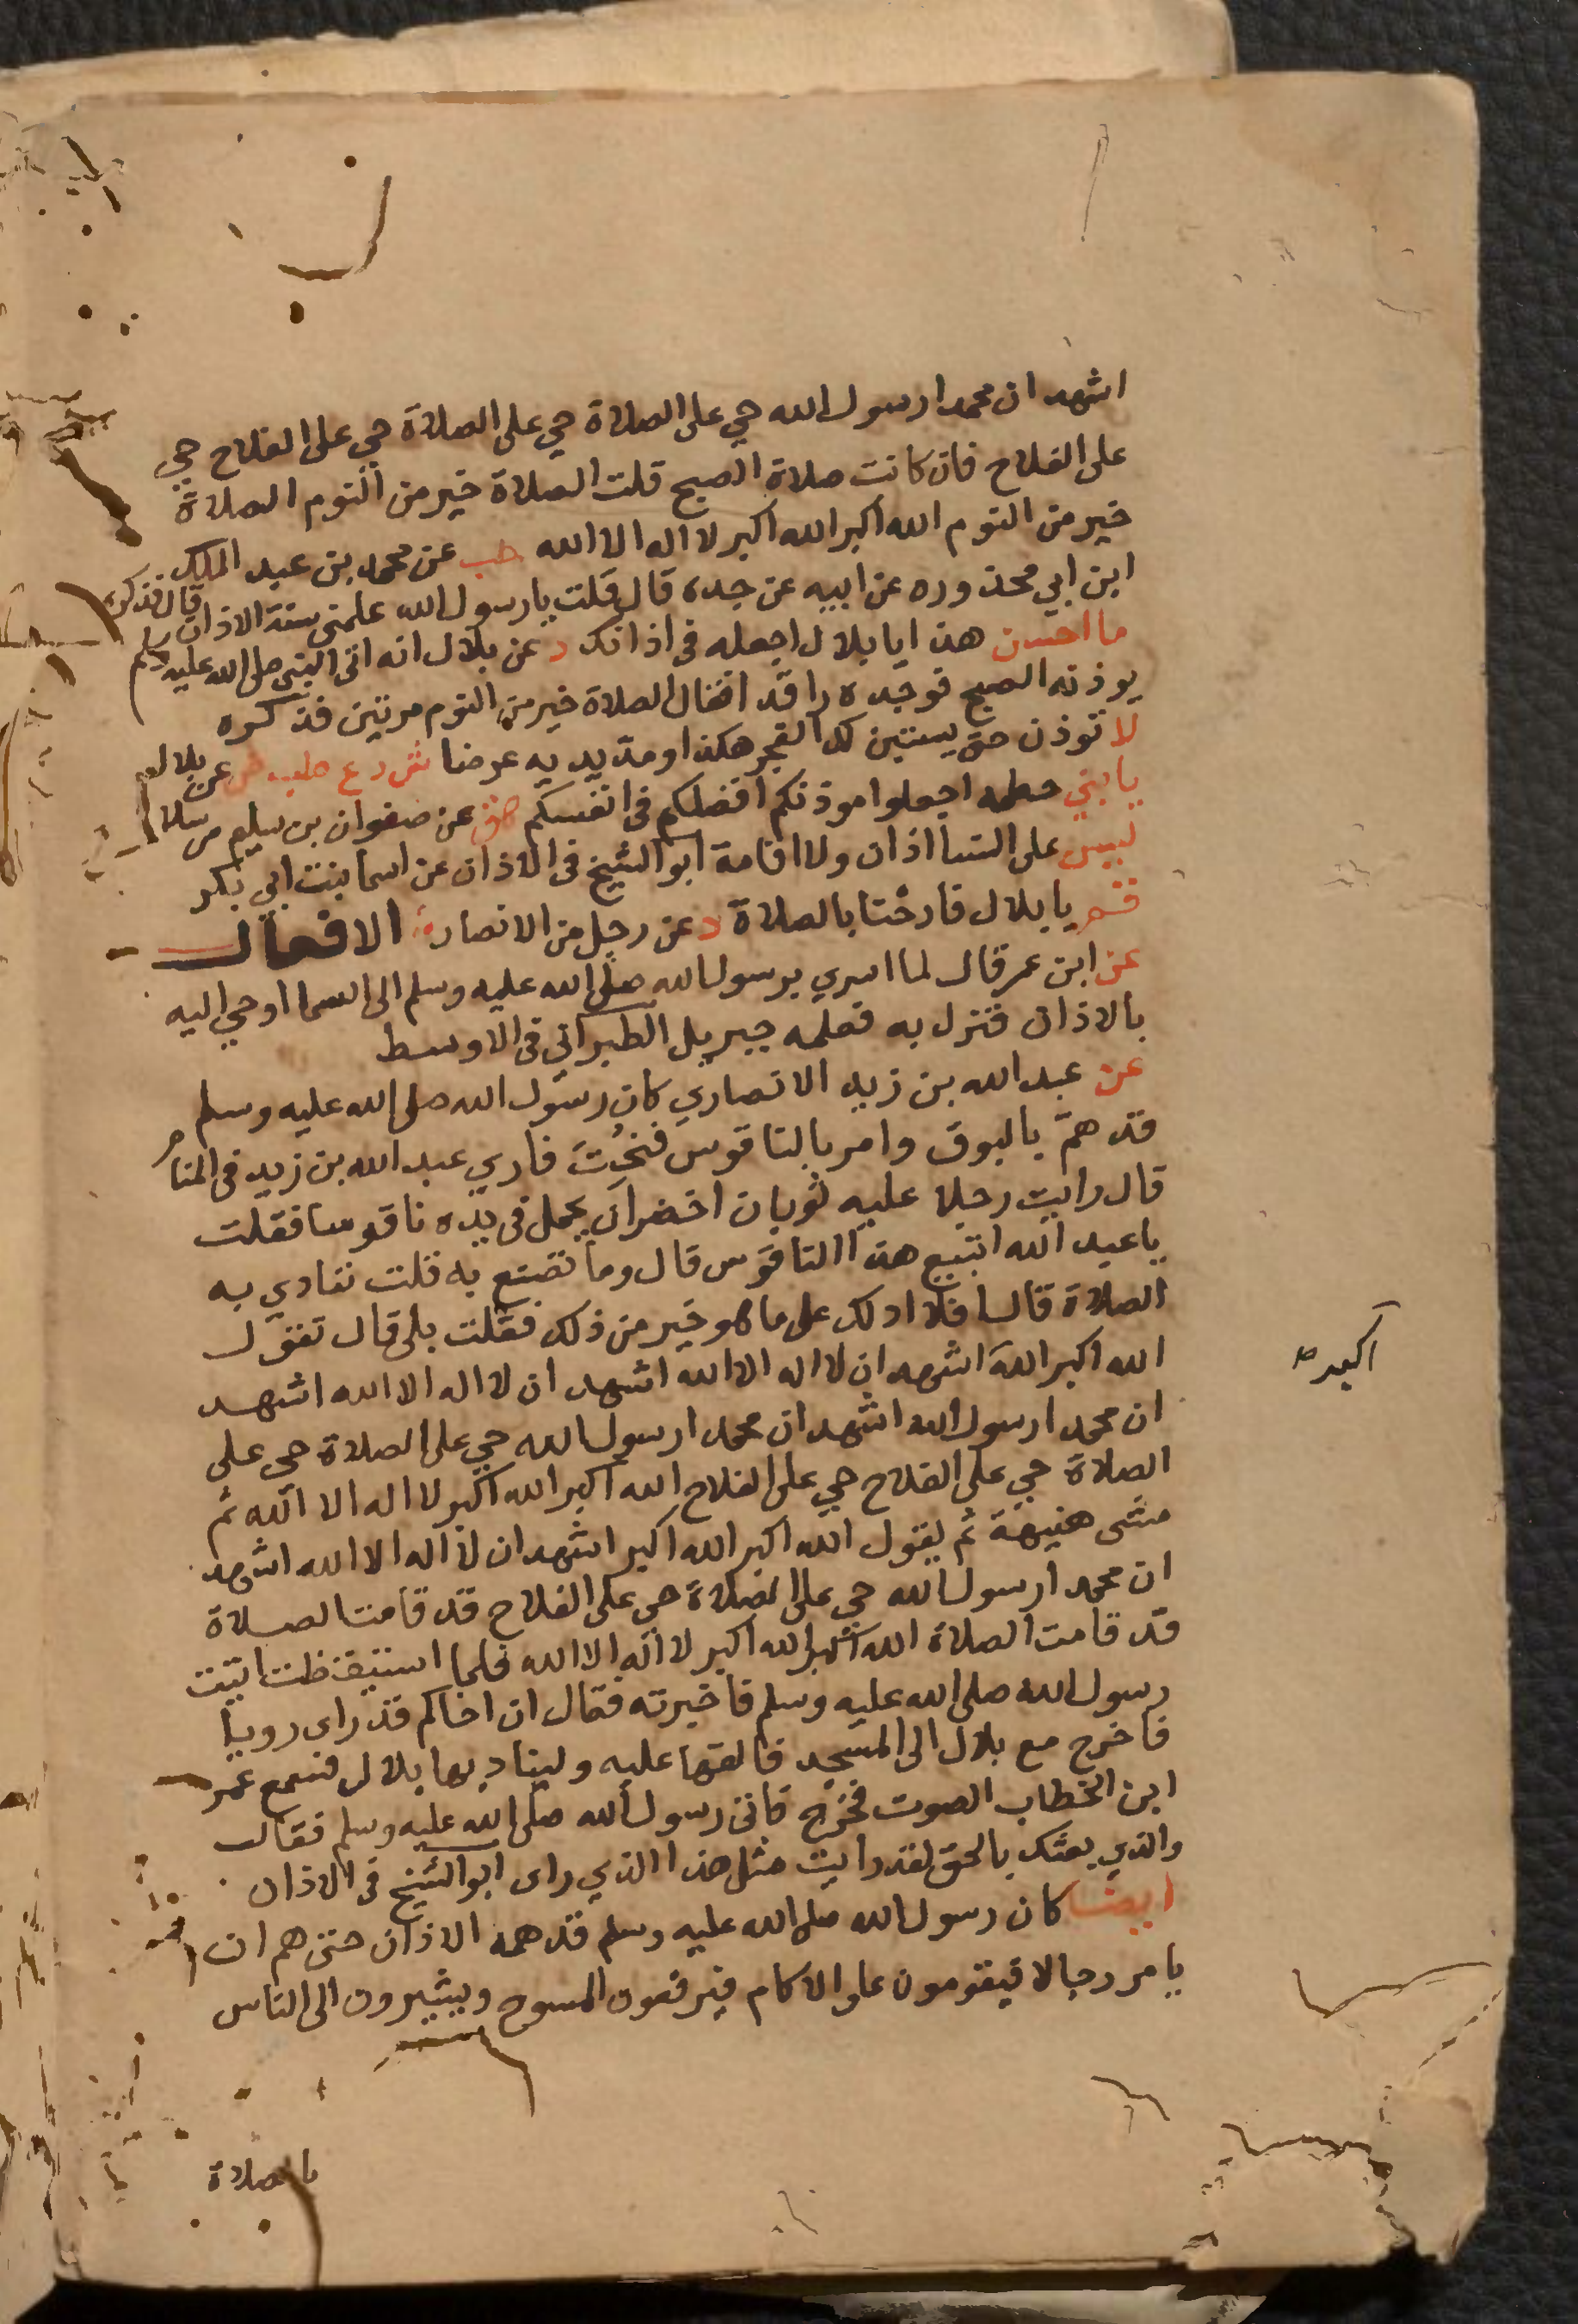 اشهد ان محمدا رسول الله حي على الصلاة حي على الصلاة حي على الفلاح حي
على الفلاح فان كانت صلاة الصبح قلت الصلاة خير من النوم الصلاة
خير من النوم الله اكبر الله اكبر لا اله الا الله حب عن محمد بن عبد الملك
ابن ابي محذوره عن ابيه عن جده قال قلت يا رسول الله علمني سنة الاذان قال فذكره
ما احسن هذا يا بلال اجعله في اذانك د عن بلال انه اتى النبي صلى الله عليه وسلم
يوذنه الصبح فوجده راقدا فقال الصلاة خير من النوم مرتين فذكره
لا توذن حتى يستبين لك الفجر هكذا ومد يديه عرضا ش د ع طب ض عن بلال
يا بني خطمه اجعلوا موذنكم افضلكم في انفسكم هق عن صفوان بن سليم مرسلا
ليس على النسا اذان ولا اقامة ابو الشيخ في الاذان عن اسما بنت ابي بكر
قم يا بلال فارحنا بالصلاة د عن رجل من الانصار الافعال
عن ابن عمر قال لما اسري برسول الله صلى الله عليه وسلم الى السما اوحي اليه
بالاذان فنزل به فعلمه جبريل الطبراني في الاوسط
عن عبد الله بن زيد الانصاري كان رسول الله صلى الله عليه وسلم
قد همّ بالبوق وامر بالناقوس فنحت فاري عبد الله بن زيد في المنام
قال رايت رجلا عليه ثوبان اخضران يحمل في يده ناقوسا فقلت
يا عبد الله اتبيع هذا الناقوس قال وما تصنع به قلت ننادي به
الصلاة قال افلا ادلك على ما هو خير من ذلك فقلت بلى قال تقول
الله اكبر الله اشهد ان لا اله الا الله اشهد ان لا اله الا الله اشهد
اكبر صح
ان محمدا رسول الله اشهد ان محمدا رسول الله حي على الصلاة حي على
الصلاة حي على الفلاح حي على الفلاح الله اكبر الله اكبر لا اله الا الله ثم
مشى هنيهة ثم يقول الله اكبر الله اكبر اشهد ان لا اله الا الله اشهد
ان محمدا رسول الله حي على الصلاة حي على الفلاح قد قامت الصلاة
قد قامت الصلاة الله اكبر الله اكبر لا اله الا الله فلما استيقظت اتيت
رسول الله صلى الله عليه وسلم فاخبرته فقال ان اخاكم قد راى رويا
فاخرج مع بلال الى المسجد فالقها عليه وليناد بها بلال فسمع عمر
ابن الخطاب الصوت فخرج فاتى رسول الله صلى الله عليه وسلم فقال
والذي بعثك بالحق لقد رايت مثل هذا الذي راى ابو الشيخ في الاذان
ايضا كان رسول الله صلى الله عليه وسلم قد همه الاذان حتى هم ان
يامر رجالا فيقومون على الاكام فيرفعون المسوح ويشيرون الى الناس
بالصلاة